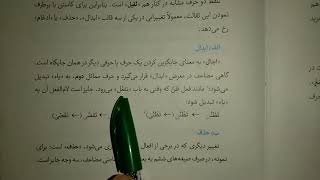 تلفظ دو حرف مشابه در کنار هم، «ثقیل» است. بنابراین برای کاستن یا برطرف
نمودن این ثقالت، معمولاً تغییراتی در یکی از سه قالب «ابدال»، «حذف» یا «ادغام»
رخ می‌دهد:
الف: ابدال
«ابدال» به معنای جایگزین کردن یک حرف با حرفی دیگر در همان جایگاه است.
گاهی مضاعف در معرض «ابدال» قرار می‌گیرد و حرف مماثل دوم، به «یاء» تبدیل
می‌شود؛ مانند فعل ظنّ که وقتی به باب «تفعّل» می‌رود، جایز است لام‌الفعل آن به
«یاء» تبدیل شود:
تَظَنَّنَ ← تَظَنَّیَ (← تَظَنّی)
ب: حذف
تغییر دیگری که در برخی از افعال می‌شود، «حذف» است؛ برای
نمونه، در صرف صیغه‌های ششم به بعد ماضی مضاعف، سه وجه جایز است.